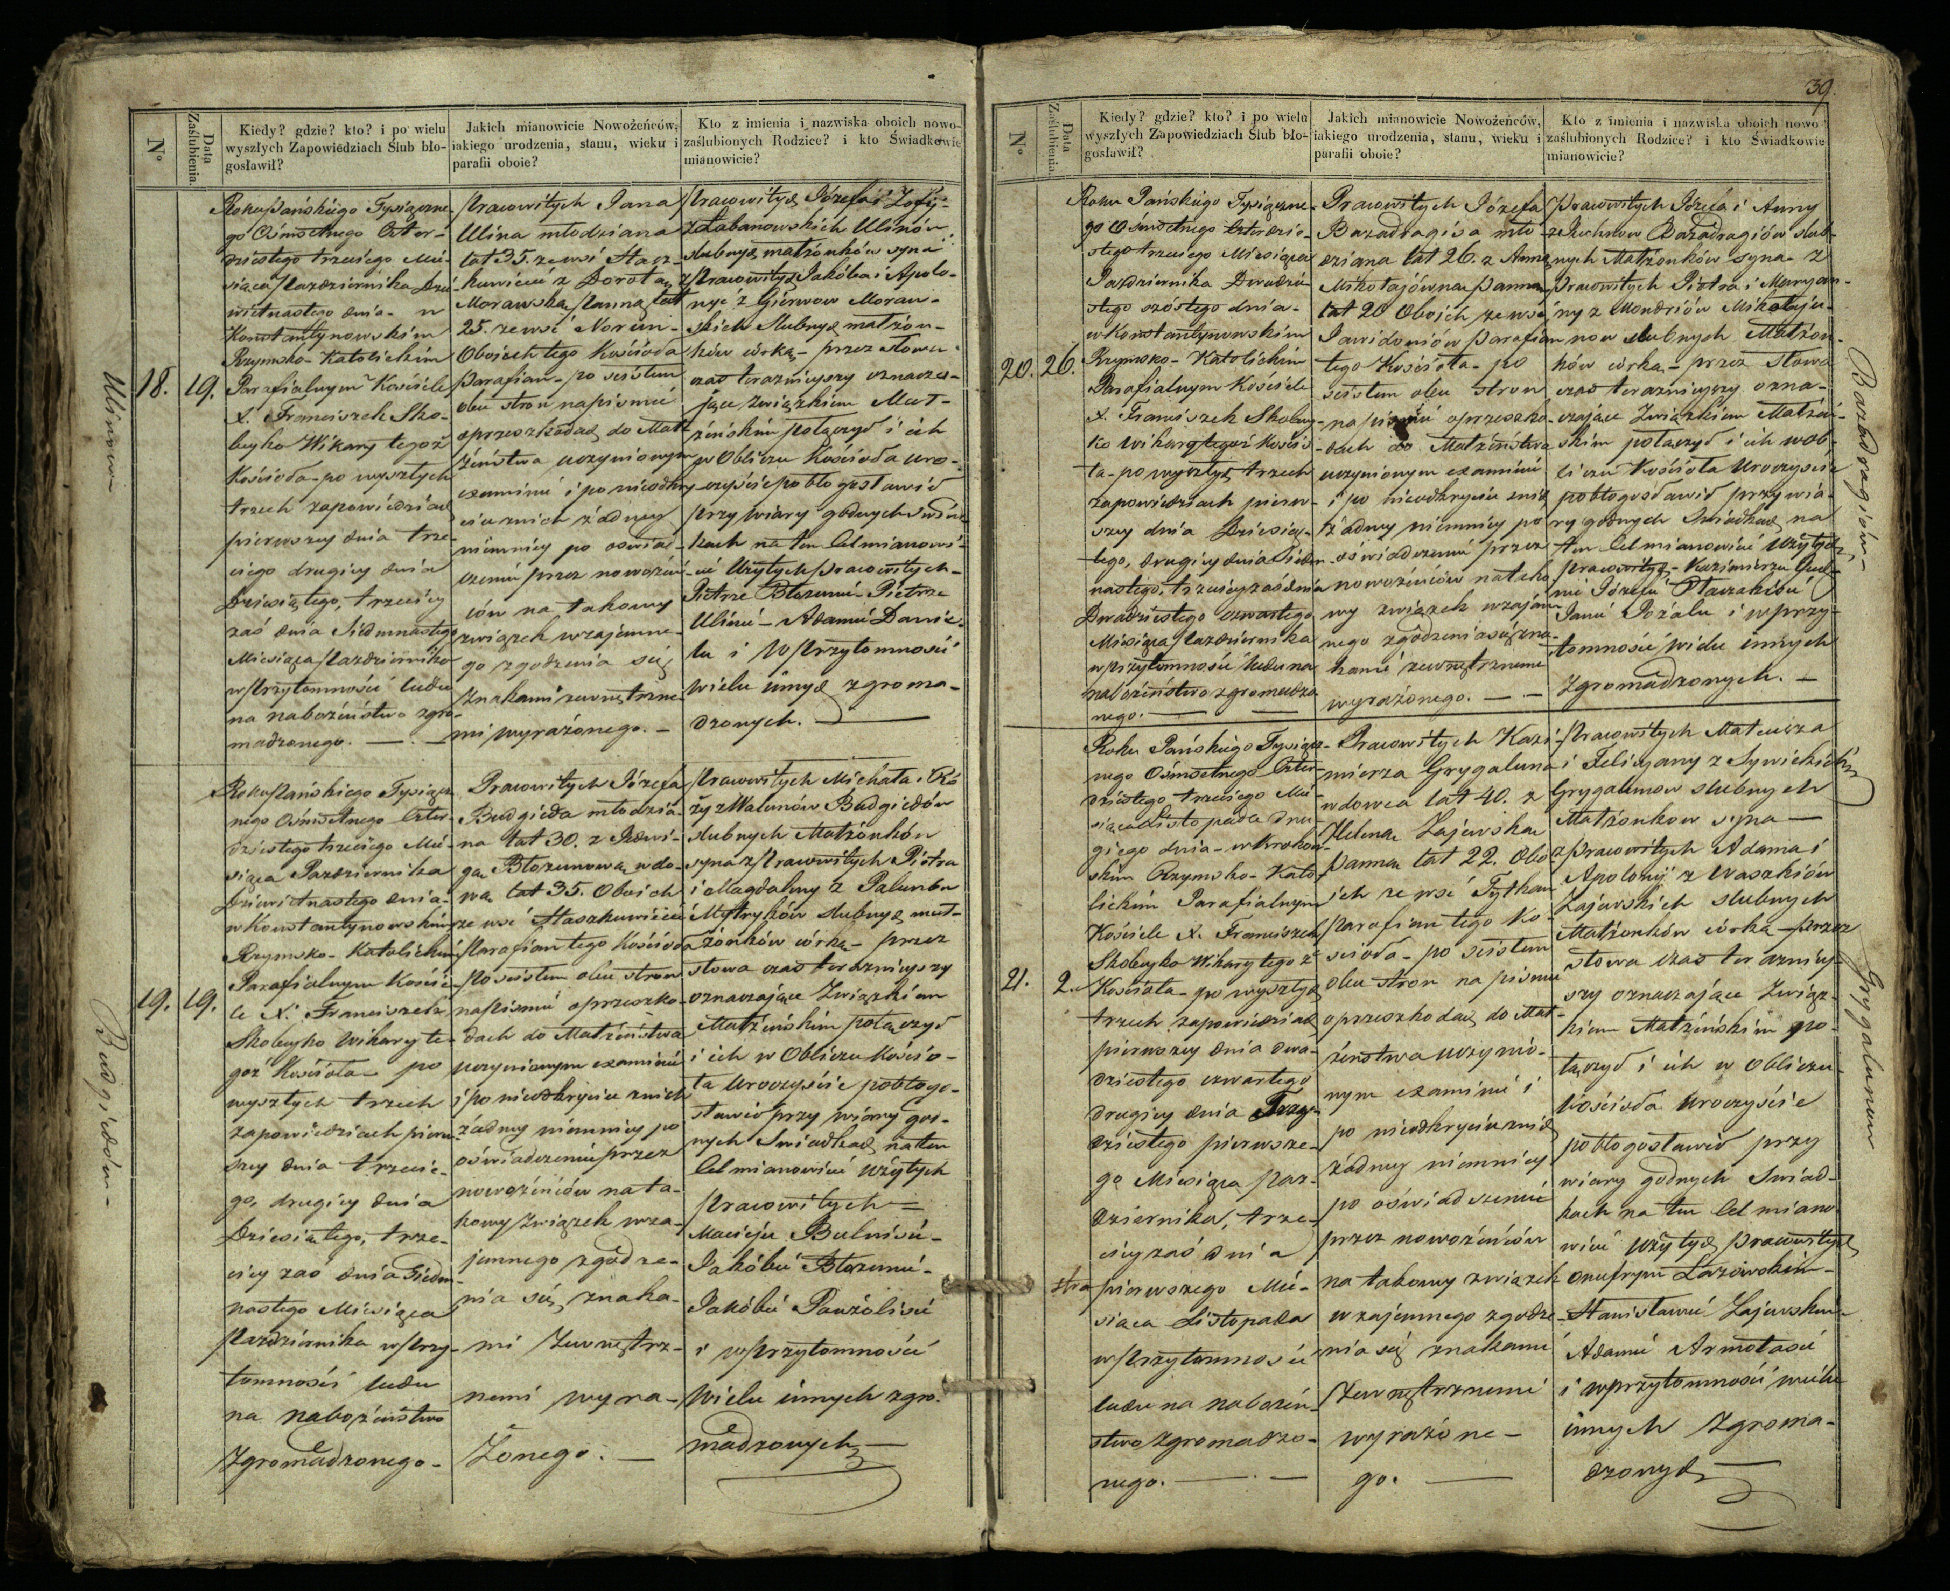 39.
N°
Data Zaślubienia.
Kiedy? gdzie? kto? i po wielu
wyszłych Zapowiedziach Ślub bło-
gosławił?
Jakich mianowicie Nowożeńców,
jakiego urodzenia, stanu, wieku i
parafii oboie?
Kto z imienia i nazwiska oboich nowo-
zaślubionych Rodzice? i kto Świadkowie
mianowicie?
18.
19.
Roku Pańskiego Tysiączne-
go Ośmsetnego Czter-
dziestego trzeciego Mie-
siąca Pazdziernika Dzie-
wietnastego dnia - w
Konstantynowskim
Rzymsko-Katolickim
Parafialnym Kościele
X. Franciszek Sko-
beyko Wikary tegoż
Kościoła - po wyszłych
trzech zapowiedziach
pierwszey dnia trze-
ciego drugiey dnia
Dziesiątego, trzeciey
zaś dnia Siedmnastego
Miesiąca Pazdziernika
w Przytomności ludu
na nabożeństwo zgro-
madzonego. —
Pracowitych Jana
Ulina młodziana
lat 35. ze wsi Stasz-
kuwiciu z Dorotą
Morawską Panną lat
25. ze wsi Norun-
Oboiech tego Kościoła
Parafian - po ścisłem
obu stron na piśmie
o przeszkodach do Mał-
żeństwa uczynionym
examinie i po nieodkry-
ciu z nich żadney
niemniey po oswiad-
czeniu przez nowożeń-
ców na takowy
związek wzajemne-
go zgodzenia się
znakami zewnętrzne-
mi wyrażonego. -
Pracowitych Józefa i Zofij
z Łabanowskich Ulinów
slubnych małżonków syna
z Pracowitych Jakóba i Apolo-
nyi z Gierwow Moraw-
skich Slubnych małżon-
ków córką - przez słowa
czas teraznieyszy oznacza-
jące Związkiem Mał-
żeńskim połączył i ich
w Obliczu Kościoła uro-
czyście pobłogosławił
przy wiary godnych Swiad-
kach na ten Cel mianowi-
cie Użytych Pracowitych -
Pietrze Błozunie - Pietrze
Ulinie - Adamie Danie-
lu i W Przytomności
Wielu innych zgroma-
dzonych. —
Ulinów
19.
19.
Roku Pańskiego Tysiącz-
nego Ośmsetnego Czter-
dziestego trzeciego Mie-
siąca Pazdziernika
Dziewietnastego dnia -
w Konstantynowskim
Rzymsko-Katolickim
Parafialnym Koście-
le X. Franciszek
Skobeyko Wikary te-
goż Kościoła - po
wyszłych trzech
zapowiedziach pierw-
szey dnia trzecie-
go, drugiey dnia
Dziesiątego, trze-
ciey zaś dnia Siedm-
nastego Miesiąca
Pazdziernika w Przy-
tomności ludu
na nabożeństwo
Zgromadzonego. -
Pracowitych Józefa
Budgieda młodzia-
na lat 30. z Jadwi-
gą Błozunową wdo-
wą lat 35. Oboich
ze wsi Staszkuwiciu
Parafian tego Kościoła
Po scisłem obu stron
na piśmie o przeszko-
dach do Małżeństwa
uczynionym examinie
i po nieodkryciu z nich
żadney niemniey po
oświadczeniu przez
nowożeńców na ta-
kowy Związek wza-
jemnego zgodze-
nia się, znaka-
mi Zewnętrz-
nemi wyra-
żonego. —
Pracowitych Michała i Ró-
ży z Walunów Budgiedów
slubnych Małżonków
syna z Pracowitych Piotra
i Magdaleny z Palunbu
Mytryków slubnych mał-
żonków córką - przez
słowa czas teraznieyszy
oznaczające Związkiem
Małżeńskim połączył
i ich w Obliczu Kościo-
ła Uroczyście pobłogo-
sławił przy wiary god-
nych Swiadkach na ten
Cel mianowicie użytych
Pracowitych =
Macieju Bulnisie -
Jakóbie Błozunie -
Jakóbie Pauzolisie
i w Przytomności
Wielu innych zgro-
madzonych —
Budgiedów -
N°
Data Zaślubienia.
Kiedy? gdzie? kto? i po wielu
wyszłych Zapowiedziach Ślub bło-
gosławił?
Jakich mianowicie Nowożeńców,
jakiego urodzenia, stanu, wieku i
parafii oboie?
Kto z imienia i nazwiska oboich nowo
zaślubionych Rodzice? i kto Świadkowie
mianowicie?
20.
26.
Roku Pańskiego Tysiączne-
go Ośmsetnego Czterdzie-
stego trzeciego Miesiąca
Pazdziernika Dwudzie-
stego szóstego dnia -
w Konstantynowskim
Rzymsko-Katolickim
Parafialnym Kościele
X. Franciszek Skobey-
ko Wikary tegoż Kościo-
ła - po wyszłych trzech
zapowiedziach pierw-
szey dnia Dziesią-
tego, drugiey dnia Siedm-
nastego, trzeciey zaś dnia
Dwudziestego czwartego
Miesiąca Pazdziernika
w Przytomności ludu na
nabożeństwo zgromadzo
nego. — —
Pracowitych Józefa
Bazadragisa mło-
dziana lat 26. z Anną
Mikołajówną Panną
lat 20 Oboich ze wsi
Dawidoniów Parafian
tego Kościoła - po
ścisłem obu stron
na piśmie o przeszko-
dach do Małżeństwa
uczynionym examinie
i po nieodkryciu z nich
żadney niemniey po
oświadczeniu przez
nowożeńców na tako
wy związek wzajem-
nego zgodzenia się zna-
kami zewnętrznemi
wyrażonego. — -
Pracowitych Józefa i Anny
z Puchnow Bazadragiów slub-
nych Małżonków syna - z
Pracowitych Piotra i Maryan-
ny z Mondriów Mikołaju-
now slubnych Małżon-
ków córką - przez słowa
czas teraznieyszy ozna-
czające Związkiem Małżeń-
skim połączył i ich w ob-
liczu Kościoła Uroczyście
pobłogosławił przy wia-
ry godnych Swiadkach na
ten Cel mianowicie Użytych
Pracowitych - Kazimierzu
Józefie
Janie Pożalu i w przy-
tomności wielu innych
Zgromadzonych. —
Bazadragiów -
21.
2.
Roku Pańskiego Tysiącz-
nego Ośmsetnego Czter-
dziestego trzeciego Mie-
siąca Listopada dru-
giego dnia -
Rzymsko-Kato-
lickim Parafialnym
Kościele X. Franciszek
Skobeyko Wikary tegoż
Kościoła - po wyszłych
trzech zapowiedziach
pierwszey dnia dwu-
dziestego czwartego
drugiey dnia Trzy-
dziestego pierwsze-
go Miesiąca Paz-
dziernika, trze-
ciey zaś dnia
pierwszego Mie-
siąca Listopada
w Przytomności
ludu na nabożeń-
stwo zgromadzo-
nego. — —
Pracowitych Kazi-
mierza Grygaluna
wdowca lat 40. z
Heleną Zajewską
Panną lat 22. Obo-
ich ze wsi
Parafian tego Ko-
ścioła - po scisłem
obu stron na piśmie
o przeszkodach do Mał-
żeństwa uczynio-
nym examinie i
po nieodkryciu z nich
żadney niemniey
po oświadczenie
przez nowożeńców
na takowy związek
wzajemnego zgodze-
nia się znakami
Zewnętrznemi
wyrażone-
go. —
Pracowitych Mateusza
i Felicyany z Sywickich
Grygalunow slubnych
Małżonkow syna —
z Pracowitych Adama i
Apolonij z Waszkiów
Zajewskich slubnych
Małżonków córką - przez
słowa czas terazniey-
szy oznaczające Związ-
kiem Małżeńskim po-
łączył i ich w obliczu
Kościoła Uroczyście
pobłogosławił przy
wiary godnych Swiad-
kach na ten Cel miano-
wicie użytych Pracowitych
Onufrym Łazowskim -
Stanisławie Zajewskim
Adamie Armołasie
i w przytomności wielu
innych Zgroma-
dzonych —
Grygalunow